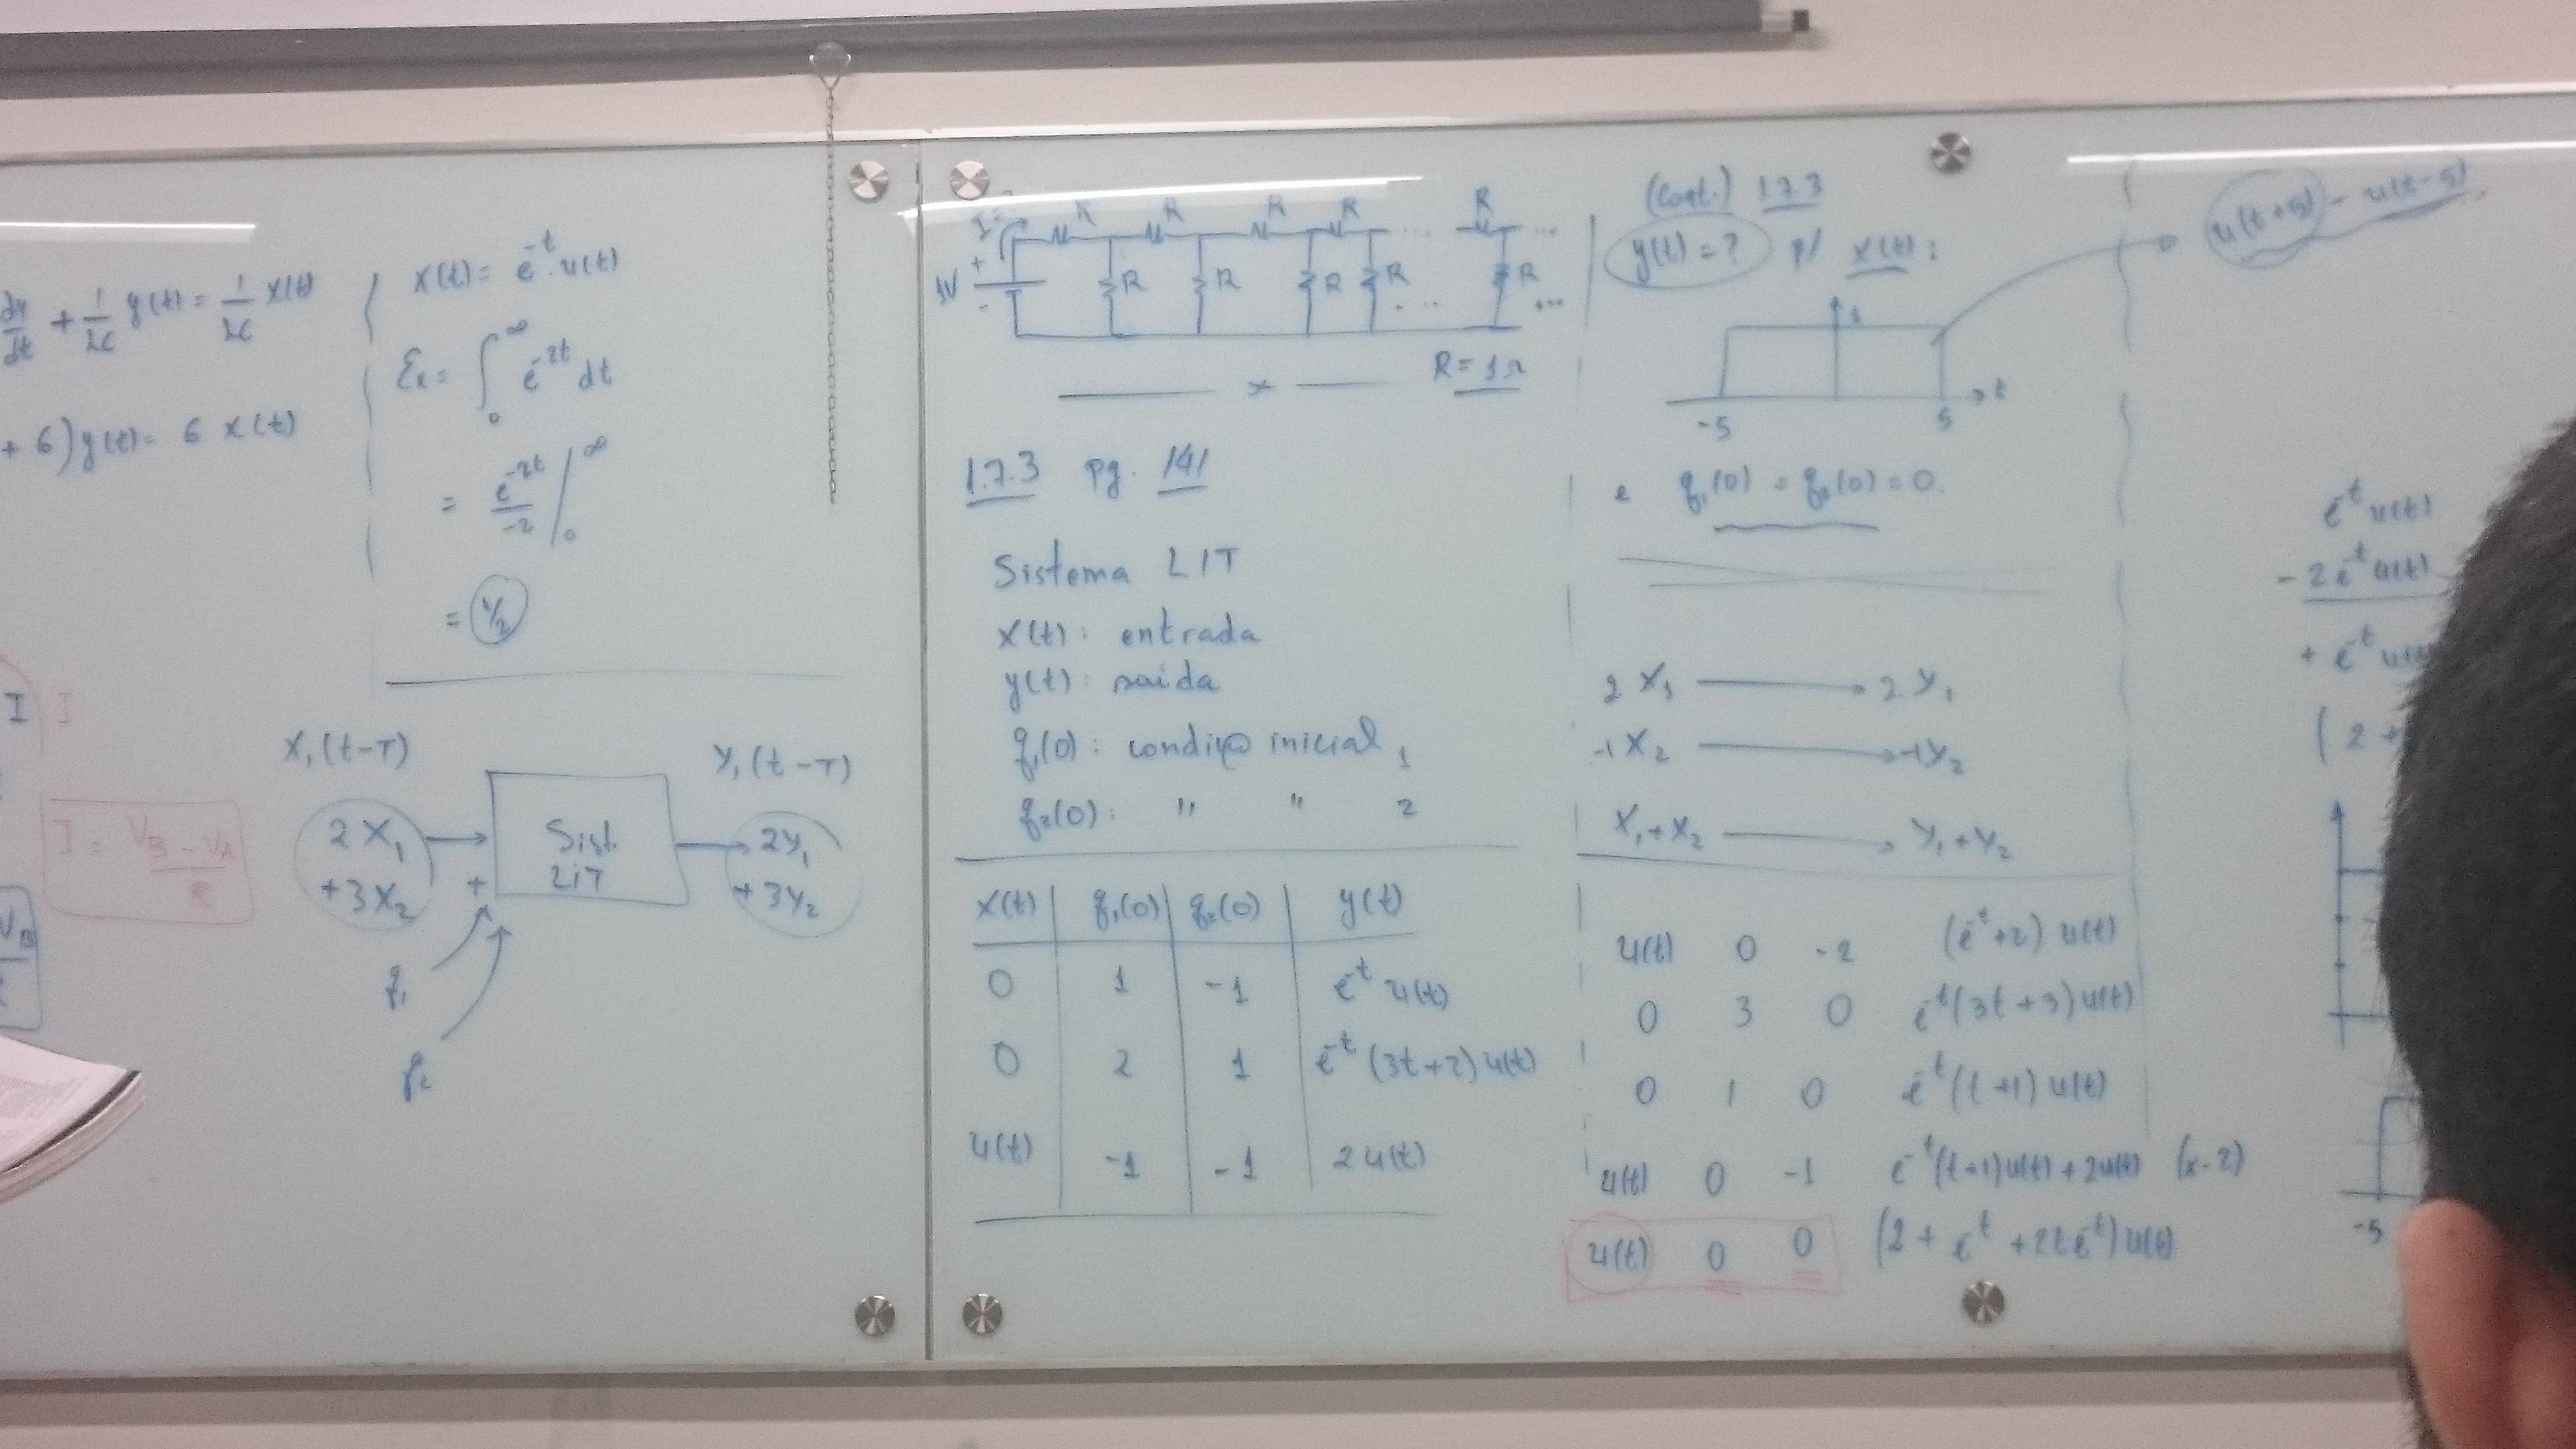 dy/dt + 1/LC y(t) = 1/LC x(t)
+ 6) y(t) = 6 x(t)
I I
I = VB - VA / R
VB
x(t) = e^-t . u(t)
Ex = ∫_0^∞ e^-2t dt
= e^-2t / -2 |_0^∞
= 1/2
X1(t-T) Y1(t-T)
2X1 + 3X2
Sist. LIT
2Y1 + 3Y2
+
q1
q2
I =
R R R R R ...
1V + -
R R R R R ...
x R = 1Ω
1.7.3 pg. 141
Sistema LIT
x(t): entrada
y(t): saída
q1(0): condição inicial 1
q2(0): " " 2
x(t) q1(0) q2(0) y(t)
0 1 -1 e^-t u(t)
0 2 1 e^-t (3t+2) u(t)
u(t) -1 -1 2u(t)
(Cont.) 1.7.3
y(t) = ? p/ x(t) :
u(t+5) - u(t-5)
1
-5 5 t
e q1(0) = q2(0) = 0.
2 X1 → 2 Y1
-1 X2 → -1 Y2
X1 + X2 → Y1 + Y2
u(t) 0 -2 (e^-t + 2) u(t)
0 3 0 e^-t (3t+3) u(t)
0 1 0 e^-t (t+1) u(t)
u(t) 0 -1 e^-t (t+1) u(t) + 2u(t) (x-2)
u(t) 0 0 (2 + e^-t + 2t e^-t) u(t)
e^-t u(t)
- 2e^-t u(t)
+ e^-t u(t)
(2 +
-5